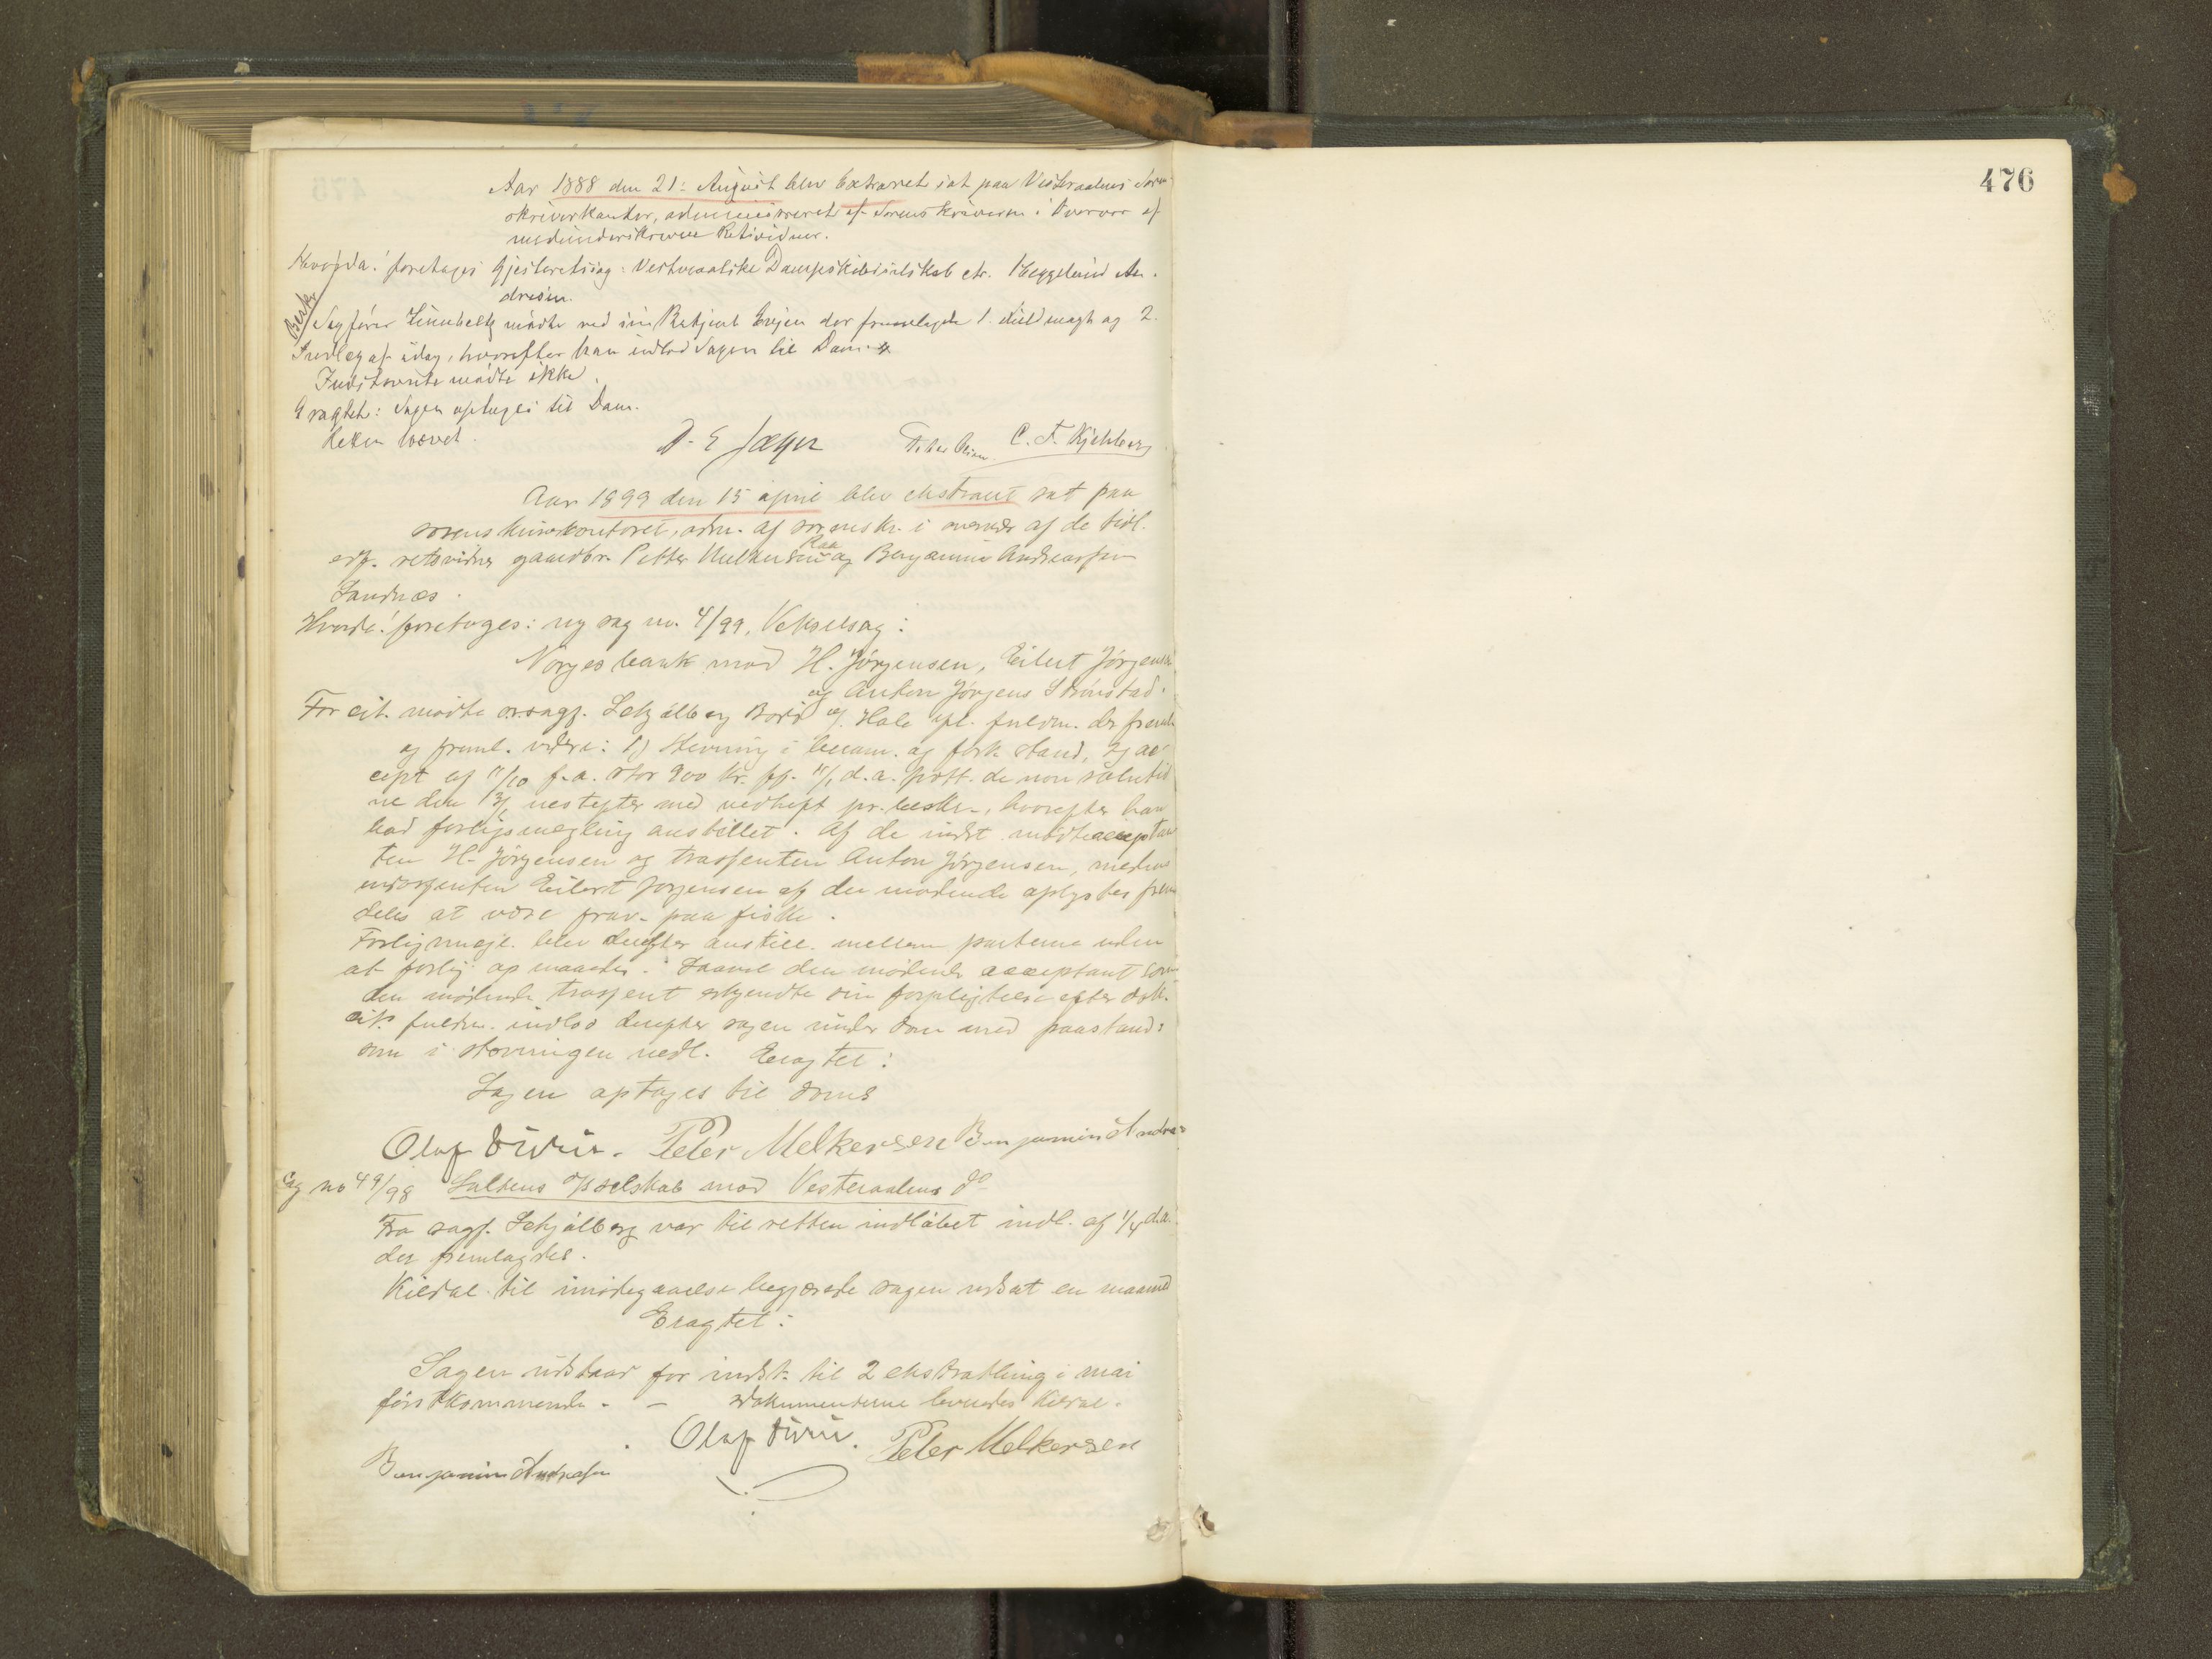 476
Aar 1888 den 21: August blev Extraret sat paa Vesteraalens Soren-
skriverkontor, administreret af Sorenskriveren i Overvær af
medunderskrevne Retsvidner.
Hvorda! foretages Gjesteretssag: Vesteraalske Dampskibsselskab ctr. Heggelund An-
dresen.
Besk
Sagfører mødte ved sin der fremlagde 1. Fuldmagt og 2.
Indlæg af idag, hvorefter han indlod Sagen til Dom.
Indstevnte mødte ikke.
Eragtet: Sagen optages til Dom.
Retten hævet.
D. E Jæger Peder Olsen C. F. Kjehlberg
Aar 1899 den 15 april blev ekstraret sat paa
sorenskriverkontoret, adm. af sorenskr. i overvær af de tidl.
edf. retsvidner gaardbr. Petter Melkersen Raa og Benjamin Andreassen
Sandnæs.
Hvorda! foretages: ny sag no. 4/99, Vekselsag:
Norges bank mod H. Jørgensen, Eilert Jørgensen
og Anton Jørgens Strønstad.
For cit. mødte orsagf. Schjølberg Bodø af. Hole spl. fuldm. der freml.
og freml. videre: 1) Stevning i beram. og fork. stand, 2) ac-
cept af 11/10 f. a. stor 900 kr. pr. 11/1 d. a. prot. de non solutio
ne den 13/ nestefter med vedheft pr. besk., hvorefter han
bad forligsmegling anstillet. Af de indst. mødte acceptan
ten H. Jørgensen og trassenten Anton Jørgensen, medens
endossenten Eilert Jørgensen af de mødende oplystes frem
deles at være frav. paa fiske.
Forligsmegl. blev derefter anstill. mellem parterne uden
at forlig opnaaedes. Saavel den mødende acceptant som
den mødende trassent erkjendte sin forpligtelse efter dok.
Cit. fuldm. indlod derefter sagen under dom med paastand:
som i stevningen nedl. Eragtet:
Sagen optages til doms
Olaf Peter Melkersen Benjamin Andrea
Sag no 49/98 Saltens D/Sselskab mod Vesteraalens do
Fra sagf. Schjølberg var til retten indløbet indl. af 1/4 d.a.
der fremlagdes.
Kildal til imødegaaelse begjærede sagen udsat en maaned
Eragtet:
Sagen udstaar for indst. til 2 ekstratting i mai
førstkommende. - dokumenterne leveredes Kildal.
Olaf Peter Melkersen
Benjamin Andreasen